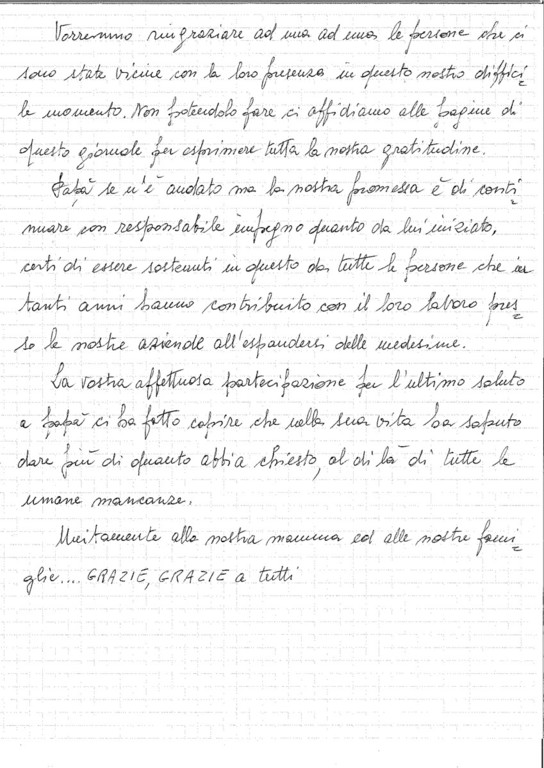 Vorremmo ringraziare ad una ad una le persone che ci
sono state vicine con la loro presenza in questo nostro diffici=
le momento. Non potendolo fare ci affidiamo alle pagine di
questo giornale per esprimere tutta la nostra gratitudine.
Papà se n'è andato ma la nostra promessa è di conti=
nuare con responsabile impegno quanto da lui iniziato,
certi di essere sostenuti in questo da tutte le persone che in
tanti anni hanno contribuito con il loro lavoro pres=
so le nostre aziende all'espandersi delle medesime.
La vostra affettuosa partecipazione per l'ultimo saluto
a papà ci ha fatto capire che nella sua vita ha saputo
dare più di quanto abbia chiesto, al di là di tutte le
umane mancanze.
Unitamente alla nostra mamma ed alle nostre fami=
glie.... GRAZIE, GRAZIE a tutti